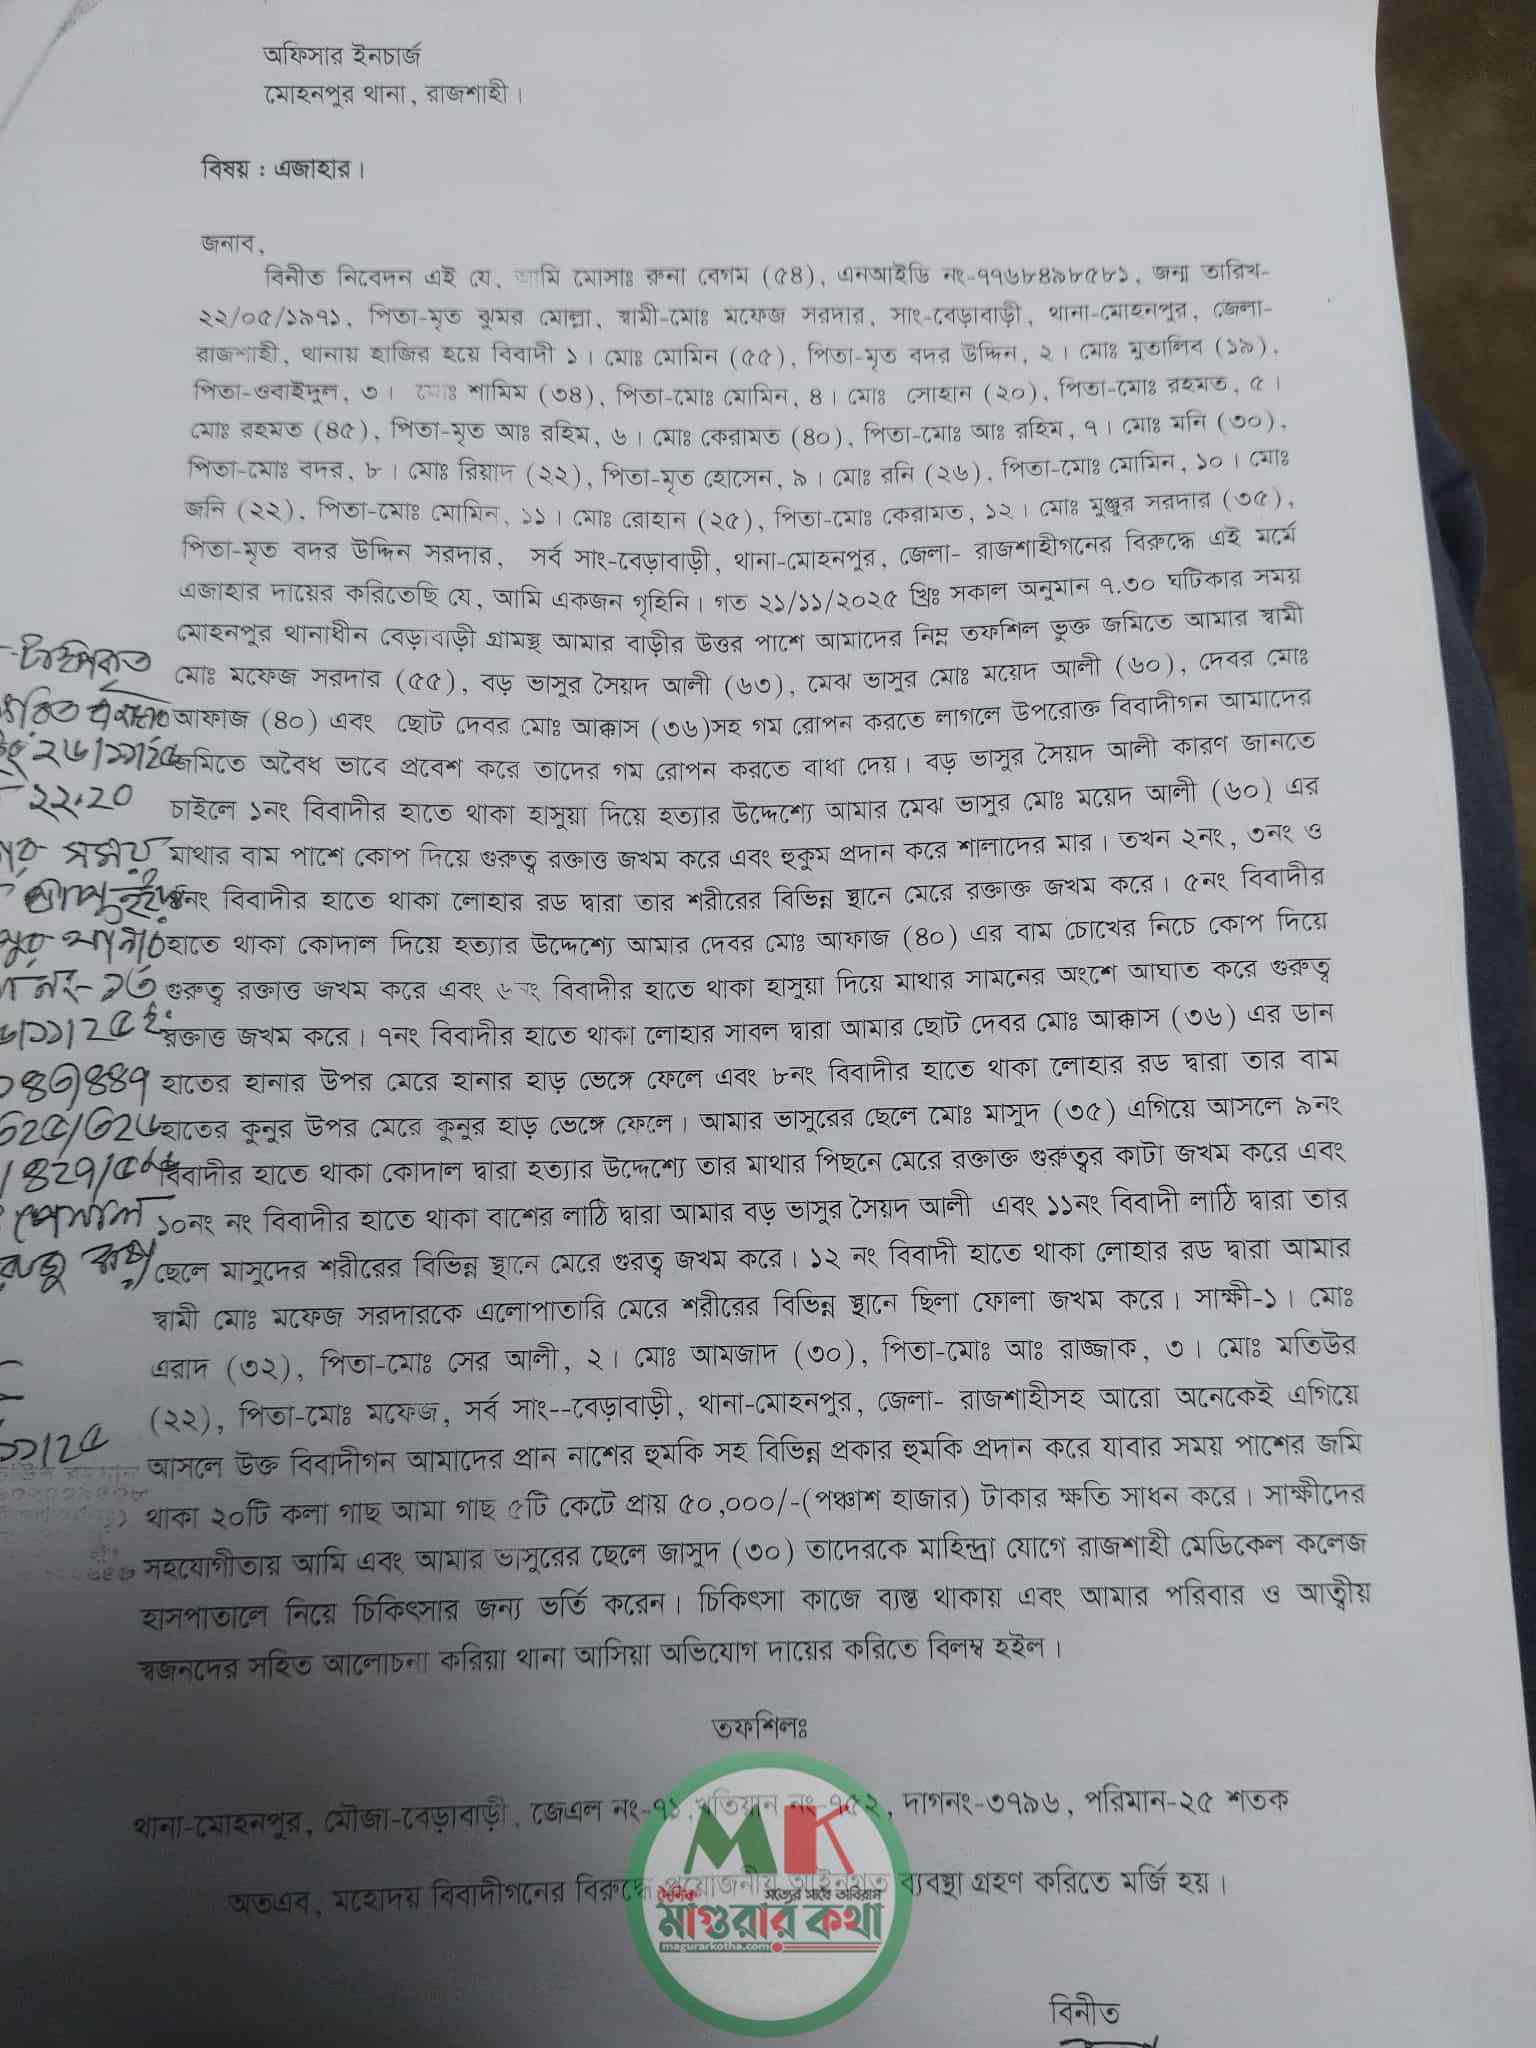 অফিসার ইনচার্জ
মোহনপুর থানা, রাজশাহী।
বিষয় : এজাহার।
জনাব,
বিনীত নিবেদন এই যে, আমি মোসাঃ রুনা বেগম (৫৪), এনআইডি নং-৭৭৬৮৪৯৮৫৮১, জন্ম তারিখ-
২২/০৫/১৯৭১, পিতা-মৃত ঝুমর মোল্লা, স্বামী-মোঃ মফেজ সরদার, সাং-বেড়াবাড়ী, থানা-মোহনপুর, জেলা-
রাজশাহী, থানায় হাজির হয়ে বিবাদী ১। মোঃ মোমিন (৫৫), পিতা-মৃত বদর উদ্দিন, ২। মোঃ মুতালিব (১৯),
পিতা-ওবাইদুল, ৩। মোঃ শামিম (৩৪), পিতা-মোঃ মোমিন, ৪। মোঃ সোহান (২০), পিতা-মোঃ রহমত, ৫।
মোঃ রহমত (৪৫), পিতা-মৃত আঃ রহিম, ৬। মোঃ কেরামত (৪০), পিতা-মোঃ আঃ রহিম, ৭। মোঃ মনি (৩০),
পিতা-মোঃ বদর, ৮। মোঃ রিয়াদ (২২), পিতা-মৃত হোসেন, ৯। মোঃ রনি (২৬), পিতা-মোঃ মোমিন, ১০। মোঃ
জনি (২২), পিতা-মোঃ মোমিন, ১১। মোঃ রোহান (২৫), পিতা-মোঃ কেরামত, ১২। মোঃ মুঞ্জুর সরদার (৩৫),
পিতা-মৃত বদর উদ্দিন সরদার, সর্ব সাং-বেড়াবাড়ী, থানা-মোহনপুর, জেলা- রাজশাহীগনের বিরুদ্ধে এই মর্মে
এজাহার দায়ের করিতেছি যে, আমি একজন গৃহিনি। গত ২১/১১/২০২৫ খ্রিঃ সকাল অনুমান ৭.৩০ ঘটিকার সময়
মোহনপুর থানাধীন বেড়াবাড়ী গ্রামস্থ আমার বাড়ীর উত্তর পাশে আমাদের নিম্ন তফশিল ভুক্ত জমিতে আমার স্বামী
মোঃ মফেজ সরদার (৫৫), বড় ভাসুর সৈয়দ আলী (৬৩), মেঝ ভাসুর মোঃ ময়েদ আলী (৬০), দেবর মোঃ
আফাজ (৪০) এবং ছোট দেবর মোঃ আক্কাস (৩৬)সহ গম রোপন করতে লাগলে উপরোক্ত বিবাদীগন আমাদের
২৬/১১/২৫ জমিতে অবৈধ ভাবে প্রবেশ করে তাদের গম রোপন করতে বাধা দেয়। বড় ভাসুর সৈয়দ আলী কারণ জানতে
২২.২০ চাইলে ১নং বিবাদীর হাতে থাকা হাসুয়া দিয়ে হত্যার উদ্দেশ্যে আমার মেঝ ভাসুর মোঃ ময়েদ আলী (৬০) এর
সময় মাথার বাম পাশে কোপ দিয়ে গুরুত্ব রক্তাত্ত জখম করে এবং হুকুম প্রদান করে শালাদের মার। তখন ২নং, ৩নং ও
৪নং বিবাদীর হাতে থাকা লোহার রড দ্বারা তার শরীরের বিভিন্ন স্থানে মেরে রক্তাক্ত জখম করে। ৫নং বিবাদীর
হাতে থাকা কোদাল দিয়ে হত্যার উদ্দেশ্যে আমার দেবর মোঃ আফাজ (৪০) এর বাম চোখের নিচে কোপ দিয়ে
গুরুত্ব রক্তাত্ত জখম করে এবং ৬নং বিবাদীর হাতে থাকা হাসুয়া দিয়ে মাথার সামনের অংশে আঘাত করে গুরুত্ব
রক্তাত্ত জখম করে। ৭নং বিবাদীর হাতে থাকা লোহার সাবল দ্বারা আমার ছোট দেবর মোঃ আক্কাস (৩৬) এর ডান
হাতের হানার উপর মেরে হানার হাড় ভেঙ্গে ফেলে এবং ৮নং বিবাদীর হাতে থাকা লোহার রড দ্বারা তার বাম
হাতের কুনুর উপর মেরে কুনুর হাড় ভেঙ্গে ফেলে। আমার ভাসুরের ছেলে মোঃ মাসুদ (৩৫) এগিয়ে আসলে ৯নং
বিবাদীর হাতে থাকা কোদাল দ্বারা হত্যার উদ্দেশ্যে তার মাথার পিছনে মেরে রক্তাক্ত গুরুত্বর কাটা জখম করে এবং
১০নং নং বিবাদীর হাতে থাকা বাশের লাঠি দ্বারা আমার বড় ভাসুর সৈয়দ আলী এবং ১১নং বিবাদী লাঠি দ্বারা তার
ছেলে মাসুদের শরীরের বিভিন্ন স্থানে মেরে গুরত্ব জখম করে। ১২ নং বিবাদী হাতে থাকা লোহার রড দ্বারা আমার
স্বামী মোঃ মফেজ সরদারকে এলোপাতারি মেরে শরীরের বিভিন্ন স্থানে ছিলা ফোলা জখম করে। সাক্ষী-১। মোঃ
এরাদ (৩২), পিতা-মোঃ সের আলী, ২। মোঃ আমজাদ (৩০), পিতা-মোঃ আঃ রাজ্জাক, ৩। মোঃ মতিউর
(২২), পিতা-মোঃ মফেজ, সর্ব সাং--বেড়াবাড়ী, থানা-মোহনপুর, জেলা- রাজশাহীসহ আরো অনেকেই এগিয়ে
আসলে উক্ত বিবাদীগন আমাদের প্রান নাশের হুমকি সহ বিভিন্ন প্রকার হুমকি প্রদান করে যাবার সময় পাশের জমি
থাকা ২০টি কলা গাছ আমা গাছ ৫টি কেটে প্রায় ৫০,০০০/-(পঞ্চাশ হাজার) টাকার ক্ষতি সাধন করে। সাক্ষীদের
সহযোগীতায় আমি এবং আমার ভাসুরের ছেলে জাসুদ (৩০) তাদেরকে মাহিন্দ্রা যোগে রাজশাহী মেডিকেল কলেজ
হাসপাতালে নিয়ে চিকিৎসার জন্য ভর্তি করেন। চিকিৎসা কাজে ব্যস্ত থাকায় এবং আমার পরিবার ও আত্বীয়
স্বজনদের সহিত আলোচনা করিয়া থানা আসিয়া অভিযোগ দায়ের করিতে বিলম্ব হইল।
তফশিলঃ
থানা-মোহনপুর, মৌজা-বেড়াবাড়ী, জেএল নং-৭১, খতিয়ান নং-৭৫২, দাগনং-৩৭৯৬, পরিমান-২৫ শতক
অতএব, মহোদয় বিবাদীগনের বিরুদ্ধে প্রয়োজনীয় আইনগত ব্যবস্থা গ্রহণ করিতে মর্জি হয়।
MK
দৈনিক সত্যের সাথে অবিরাম
মাগুরার কথা
magurarkotha.com
বিনীত